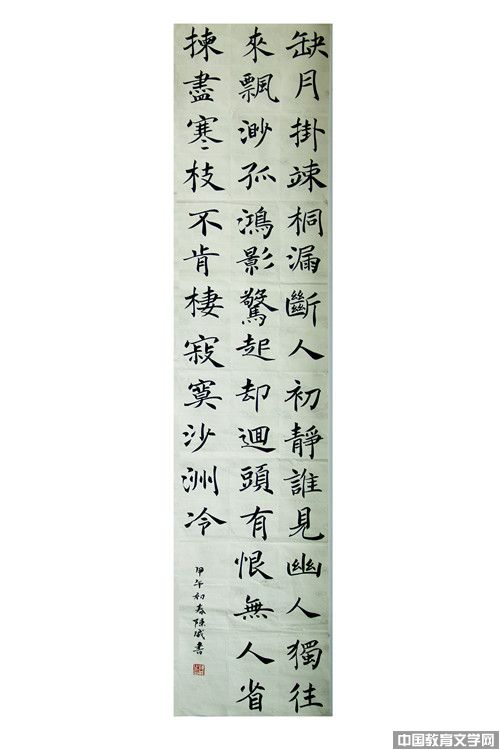 缺月掛竦桐漏斷人初靜誰見幽人獨往
來飄渺孤鴻影驚起却迴頭有恨無人省
揀盡寒枝不肯棲寂寞沙洲冷
甲午初春陳威書
中国教育文学网